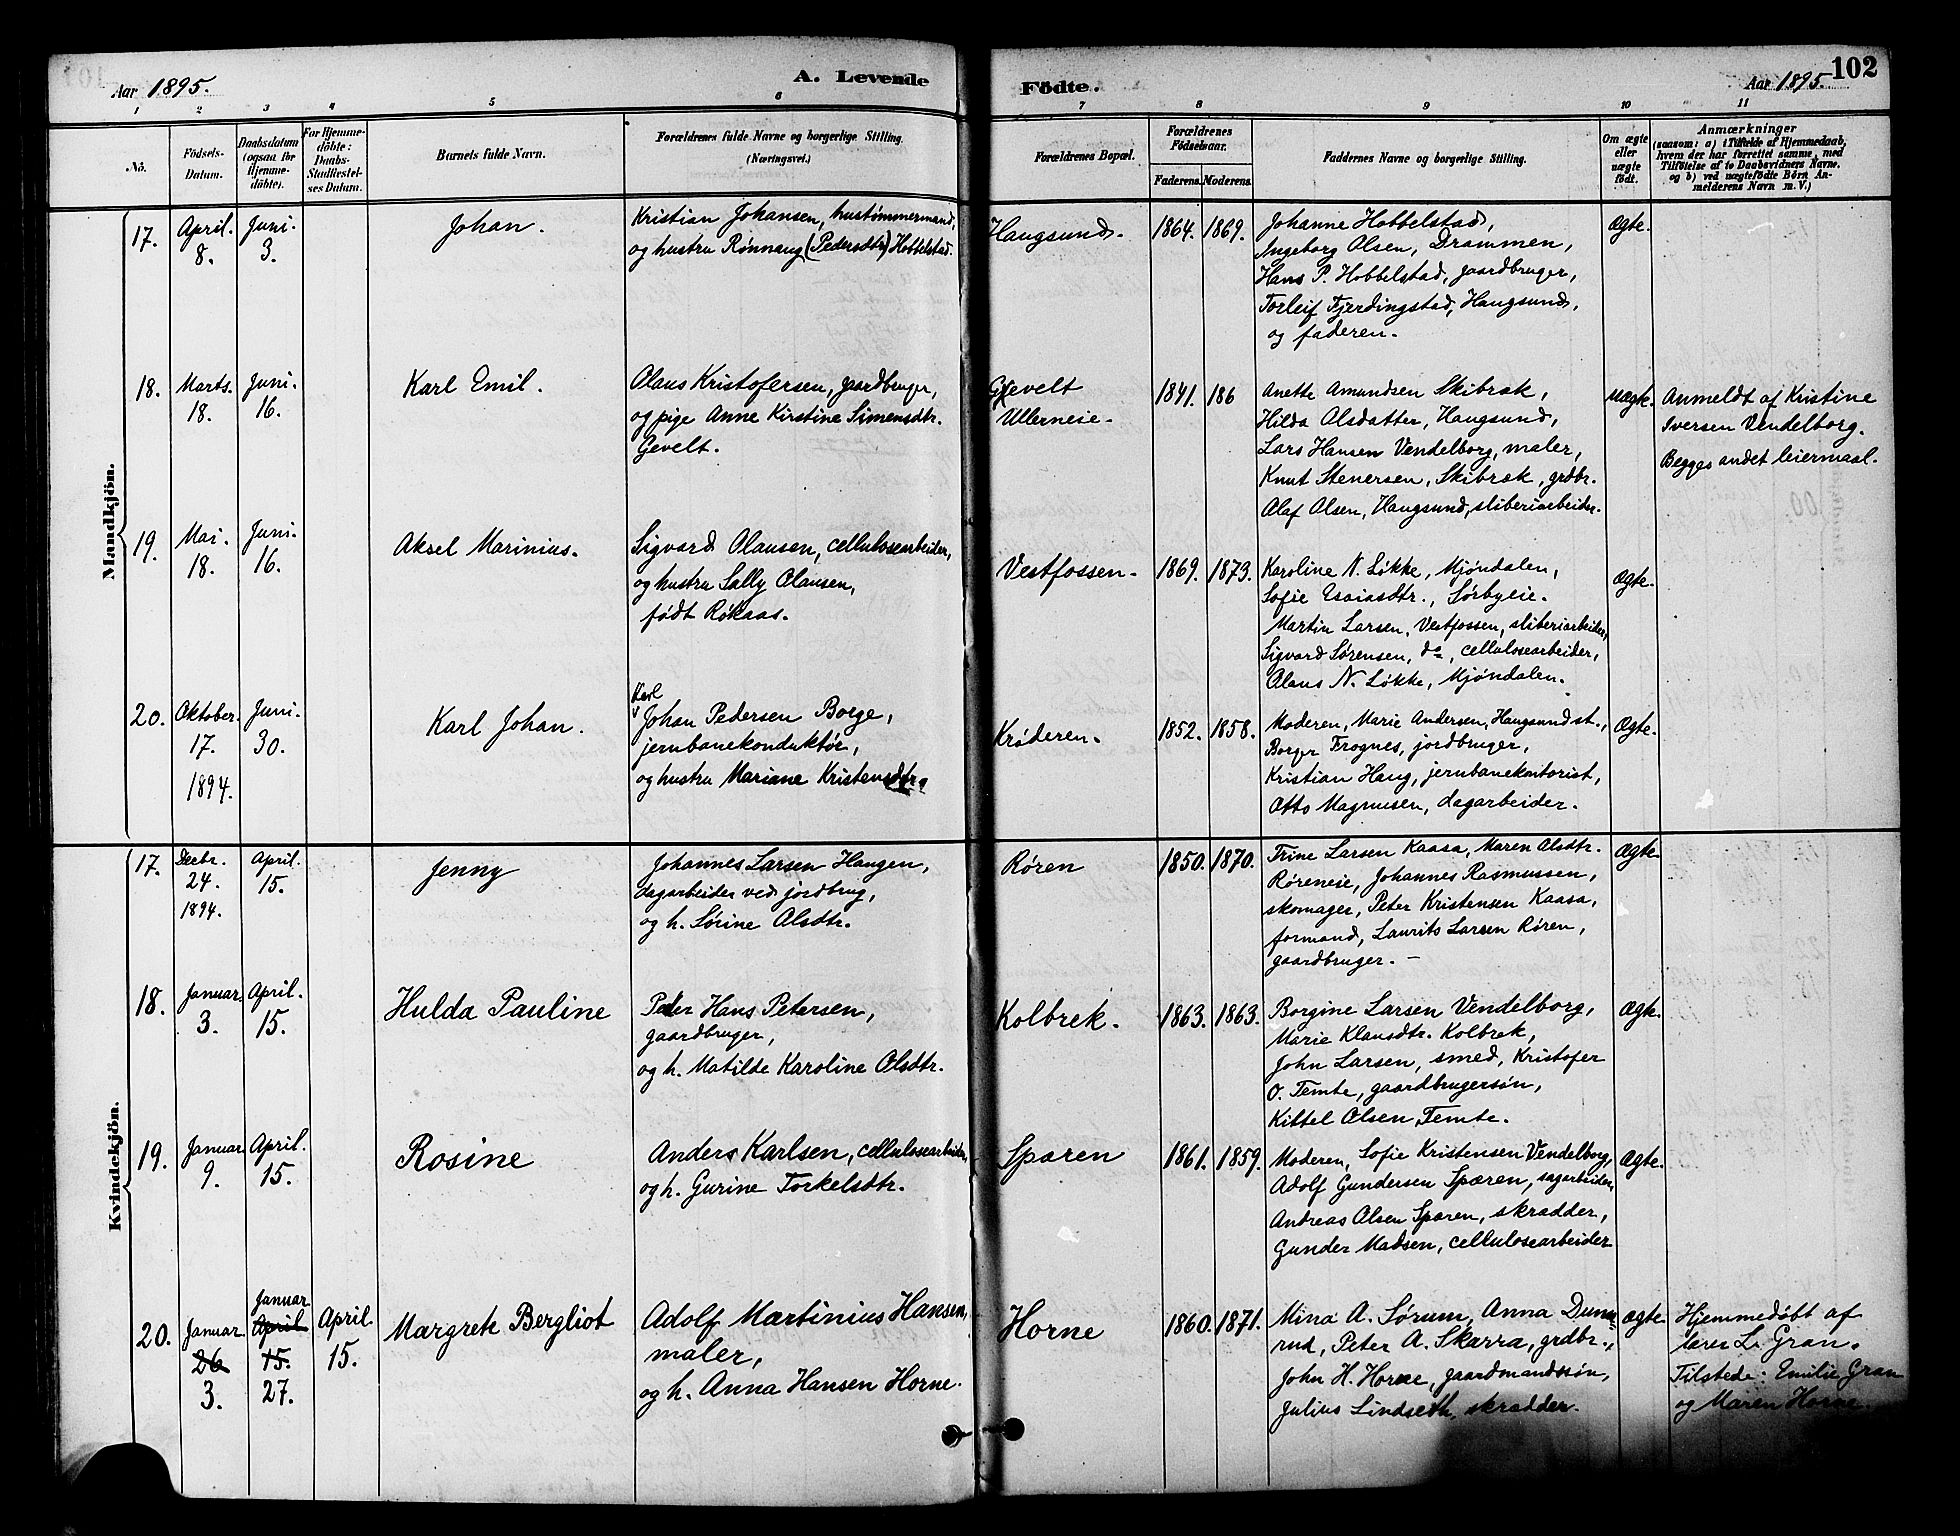 Aar 1895.
A. Levende
Födte.
Aar 1895.
102
1 2 3 4 5 6 7 8 9 10 11
No.
Födsels-
Datum.
Daabsdatum
(ogsaa for
Hjemme-
döbte).
For Hjemme-
döbte:
Daabs-
Stadfæstel-
ses Datum.
Barnets fulde Navn.
Forældrenes fulde Navne og borgerlige Stilling.
(Næringsvei.)
Forældrenes Bopæl.
Forældrenes
Födselsaar.
Faderens. Moderens.
Faddernes Navne og borgerlige Stilling.
Om ægte
eller
uægte
födt.
Anmærkninger
(saasom: a) i Tilfælde af Hjemmedaab,
hvem der har forrettet samme, med
Tilföielse af to Daabsvidners Navne,
og b) ved uægtefödte Börn An-
melderens Navn m. V.)
Mandkjön.
17.
April.
8.
Juni.
3.
Johan.
Kristian Johansen, hustømmermand,
og hustru Rønnaug (Pedersdtr) Hobbelstad.
Haugsund.
1864. 1869.
Johanne Hobbelstad,
Ingeborg Olsen, Drammen,
Hans P. Hobbelstad, gaardbruger,
Torleif Fjerdingstad, Haugsund,
og faderen.
ægte.
18.
Marts.
18.
Juni.
16.
Karl Emil.
Olaus Kristofersen, gaardbruger,
og pige Anne Kirstine Simensdtr.
Gevelt.
Gevelt
Ullerneie.
1841. 186
Anette Amundsen Skibrak,
Hilda Olsdatter, Haugsund,
Lars Hansen Vendelborg, maler,
Knut Stenersen, Skibrak, grdbr.
Olaf Olsen, Haugsund, sliberiarbeider.
uægte.
Anmeldt af Kristine
Iversen Vendelborg.
Begges andet leiermaal.
19.
Mai.
18.
Juni.
16.
Aksel Marinius.
Sigvard Olausen, cellulosearbeider,
og hustru Sally Olausen,
født Røkaas.
Vestfossen.
1869. 1873.
Karoline N. Løkke, Mjøndalen,
Sofie Esaiasdtr., Sørbyeie.
Martin Larsen, Vestfossen, sliberiarbeider,
Sigvard Sørensen, do, cellulosearbeider,
Olaus N. Løkke, Mjøndalen.
ægte.
20.
Oktober.
17.
1894.
Juni.
30.
Karl Johan.
Karl
Johan Pedersen Borge,
jernbanekonduktør,
og hustru Mariane Kristensdtr.
Krøderen.
1852. 1858.
Moderen, Marie Andersen, Haugsund st.,
Borger Frognes, jordbruger,
Kristian Haug, jernbanekontorist,
Otto Magnusen, dagarbeider.
Ægte.
Kvindekjön.
17.
Decbr.
24.
1894.
April.
15.
Jenny
Johannes Larsen Haugen,
dagarbeider ved jordbrug,
og h. Sørine Olsdtr.
Røren
1850. 1870.
Trine Larsen Kaasa, Maren Olsdtr.
Røreneie, Johannes Rasmussen,
skomager, Peter Kristensen Kaasa,
formand, Laurits Larsen Røren,
gaardbruger. –
Ægte.
18.
Januar.
3.
April.
15.
Hulda Pauline
Peder Hans Petersen,
gaardbruger,
og h. Matilde Karoline Olsdtr.
Kolbrek.
1863. 1863.
Borgine Larsen Vendelborg,
Marie Klausdtr. Kolbrek,
John Larsen, smed, Kristofer
O. Temte, gaardbrugersøn,
Kittel Olsen Temte.
Ægte.
19.
Januar
9.
April.
15.
Rosine
Anders Karlsen, cellulosearbeider,
og h. Gurine Torkelsdtr.
Spæren
1861. 1859.
Moderen, Sofie Kristensen Vendelborg,
Adolf Gundersen Spæren, sagarbeider,
Andreas Olsen Spæren, skrædder,
Gunder Madsen, cellulosearbeider
Ægte.
20.
Januar.
26
3.
Januar
April
15.
27.
April
15.
Margrete Bergliot
Adolf Martinius Hansen,
maler,
og h. Anna Hansen Horne.
Horne
1860. 1871.
Mina A. Sørum, Anna Dunse-
rud, Peter A. Skarra, grdbr.,
John H. Horne, gaardmandssøn,
Julius Lindseth, skrædder.
ægte
Hjemmedøbt af
lærer L. Gran.
Tilstede: Emilie Gran
og Maren Horne.